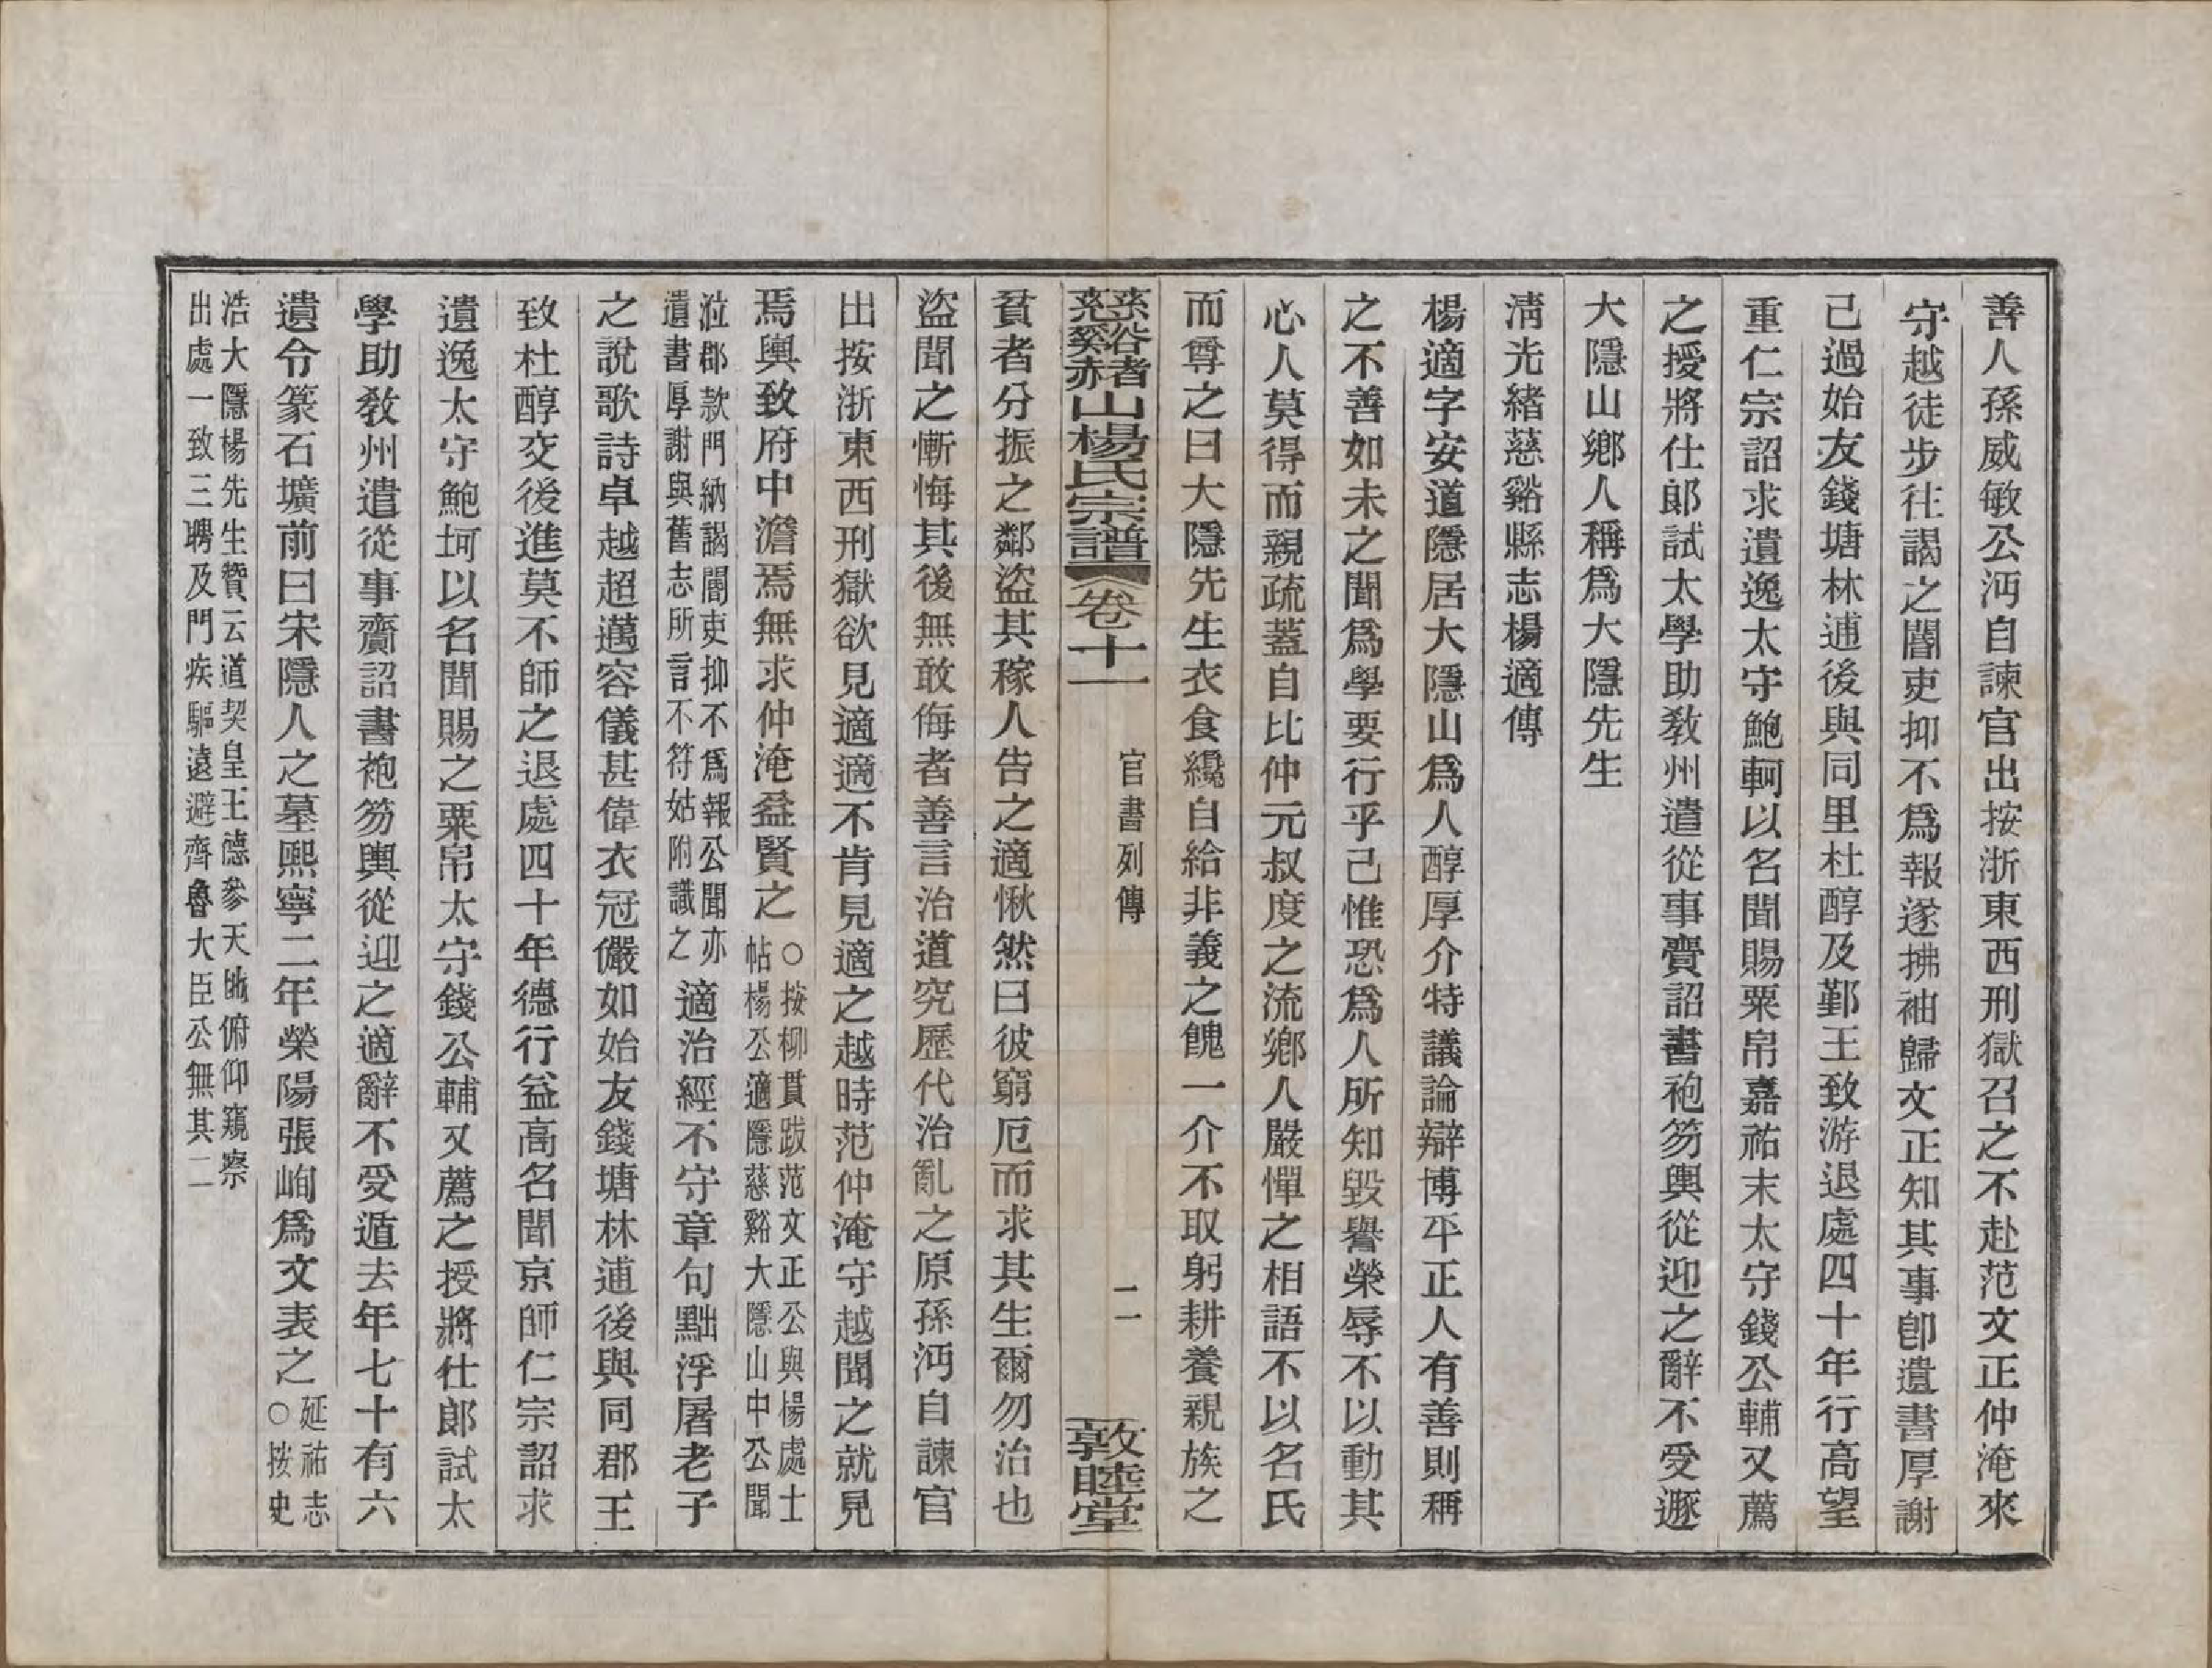 善人孫威敏公沔自諫官出按浙東西刑獄召之不赴范文正仲淹來
守越徒步往謁之閽吏抑不爲報遂拂袖歸文正知其事卽遺書厚謝
己過始友錢塘林逋後與同里杜醇及鄞王致游退處四十年行高望
重仁宗詔求遺逸太守鮑軻以名聞賜粟帛嘉祐末太守錢公輔又薦
之授將仕郞試太學助敎州遣從事賷詔書袍笏輿從迎之辭不受遯
大隱山鄉人稱爲大隱先生
淸光緒慈谿縣志楊適傳
楊適字安道隱居大隱山爲人醇厚介特議論辯博平正人有善則稱
之不善如未之聞爲學要行乎己惟恐爲人所知毀譽榮辱不以動其
心人莫得而親疏蓋自比仲元叔度之流鄉人嚴憚之相語不以名氏
而尊之曰大隱先生衣食纔自給非義之餽一介不取躬耕養親族之
慈谿赭山楊氏宗譜 卷十一 官書列傳 二 敦睦堂
貧者分振之鄰盜其稼人告之適愀然曰彼窮厄而求其生爾勿治也
盜聞之慚悔其後無敢侮者善言治道究歷代治亂之原孫沔自諫官
出按浙東西刑獄欲見適適不肯見適之越時范仲淹守越聞之就見
焉輿致府中澹焉無求仲淹益賢之
○按柳貫跋范文正公與楊處士
帖楊公適隱慈谿大隱山中公聞
涖郡款門納謁閽吏抑不爲報公聞亦
遺書厚謝與舊志所言不符姑附識之
適治經不守章句黜浮屠老子
之說歌詩卓越超邁容儀甚偉衣冠儼如始友錢塘林逋後與同郡王
致杜醇交後進莫不師之退處四十年德行益高名聞京師仁宗詔求
遺逸太守鮑坷以名聞賜之粟帛太守錢公輔又薦之授將仕郞試太
學助敎州遣從事齎詔書袍笏輿從迎之適辭不受遁去年七十有六
遺令篆石壙前曰宋隱人之墓熙寧二年榮陽張峋爲文表之
延祐志
○按史
浩大隱楊先生贊云道契皇王德參天地俯仰窺察
出處一致三聘及門疾驅遠避齊魯大臣公無其二